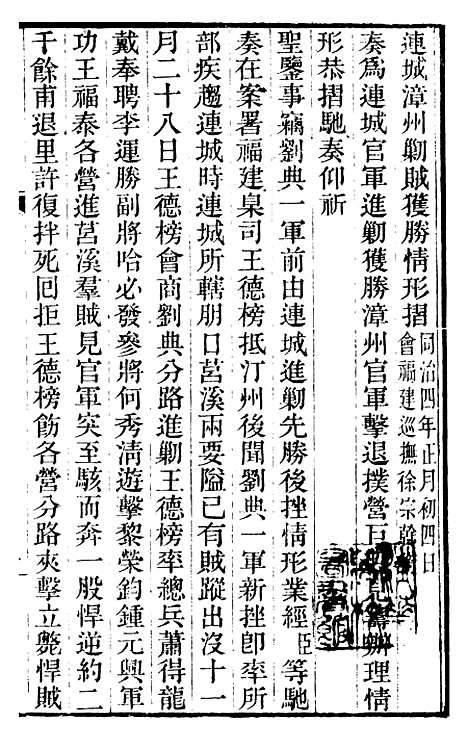 連城漳州勦賊獲勝情形摺同治四年正月初四日會福建巡撫徐宗幹
奏為連城官軍進勦獲勝漳州官軍擊退撲營巨辦理情
形恭摺馳奏仰祈
聖鑒事竊劉典一軍前由連城進勦先勝後挫情形業經臣等馳
奏在案署福建臬司王德榜抵汀州後聞劉典一軍新挫即率所
部疾趨連城時連城所轄朋口莒溪兩要隘已有賊蹤出沒十一
月二十八日王德榜會商劉典分路進勦王德榜率總兵蕭得龍
戴奉聘李運勝副將哈必發參將何秀清遊擊黎榮鈞鍾元興軍
功王福泰各營進莒溪羣賊見官軍突至駭而奔一股悍逆約二
千餘甫退里許復拌死回拒王德榜飭各營分路夾擊立斃悍賊